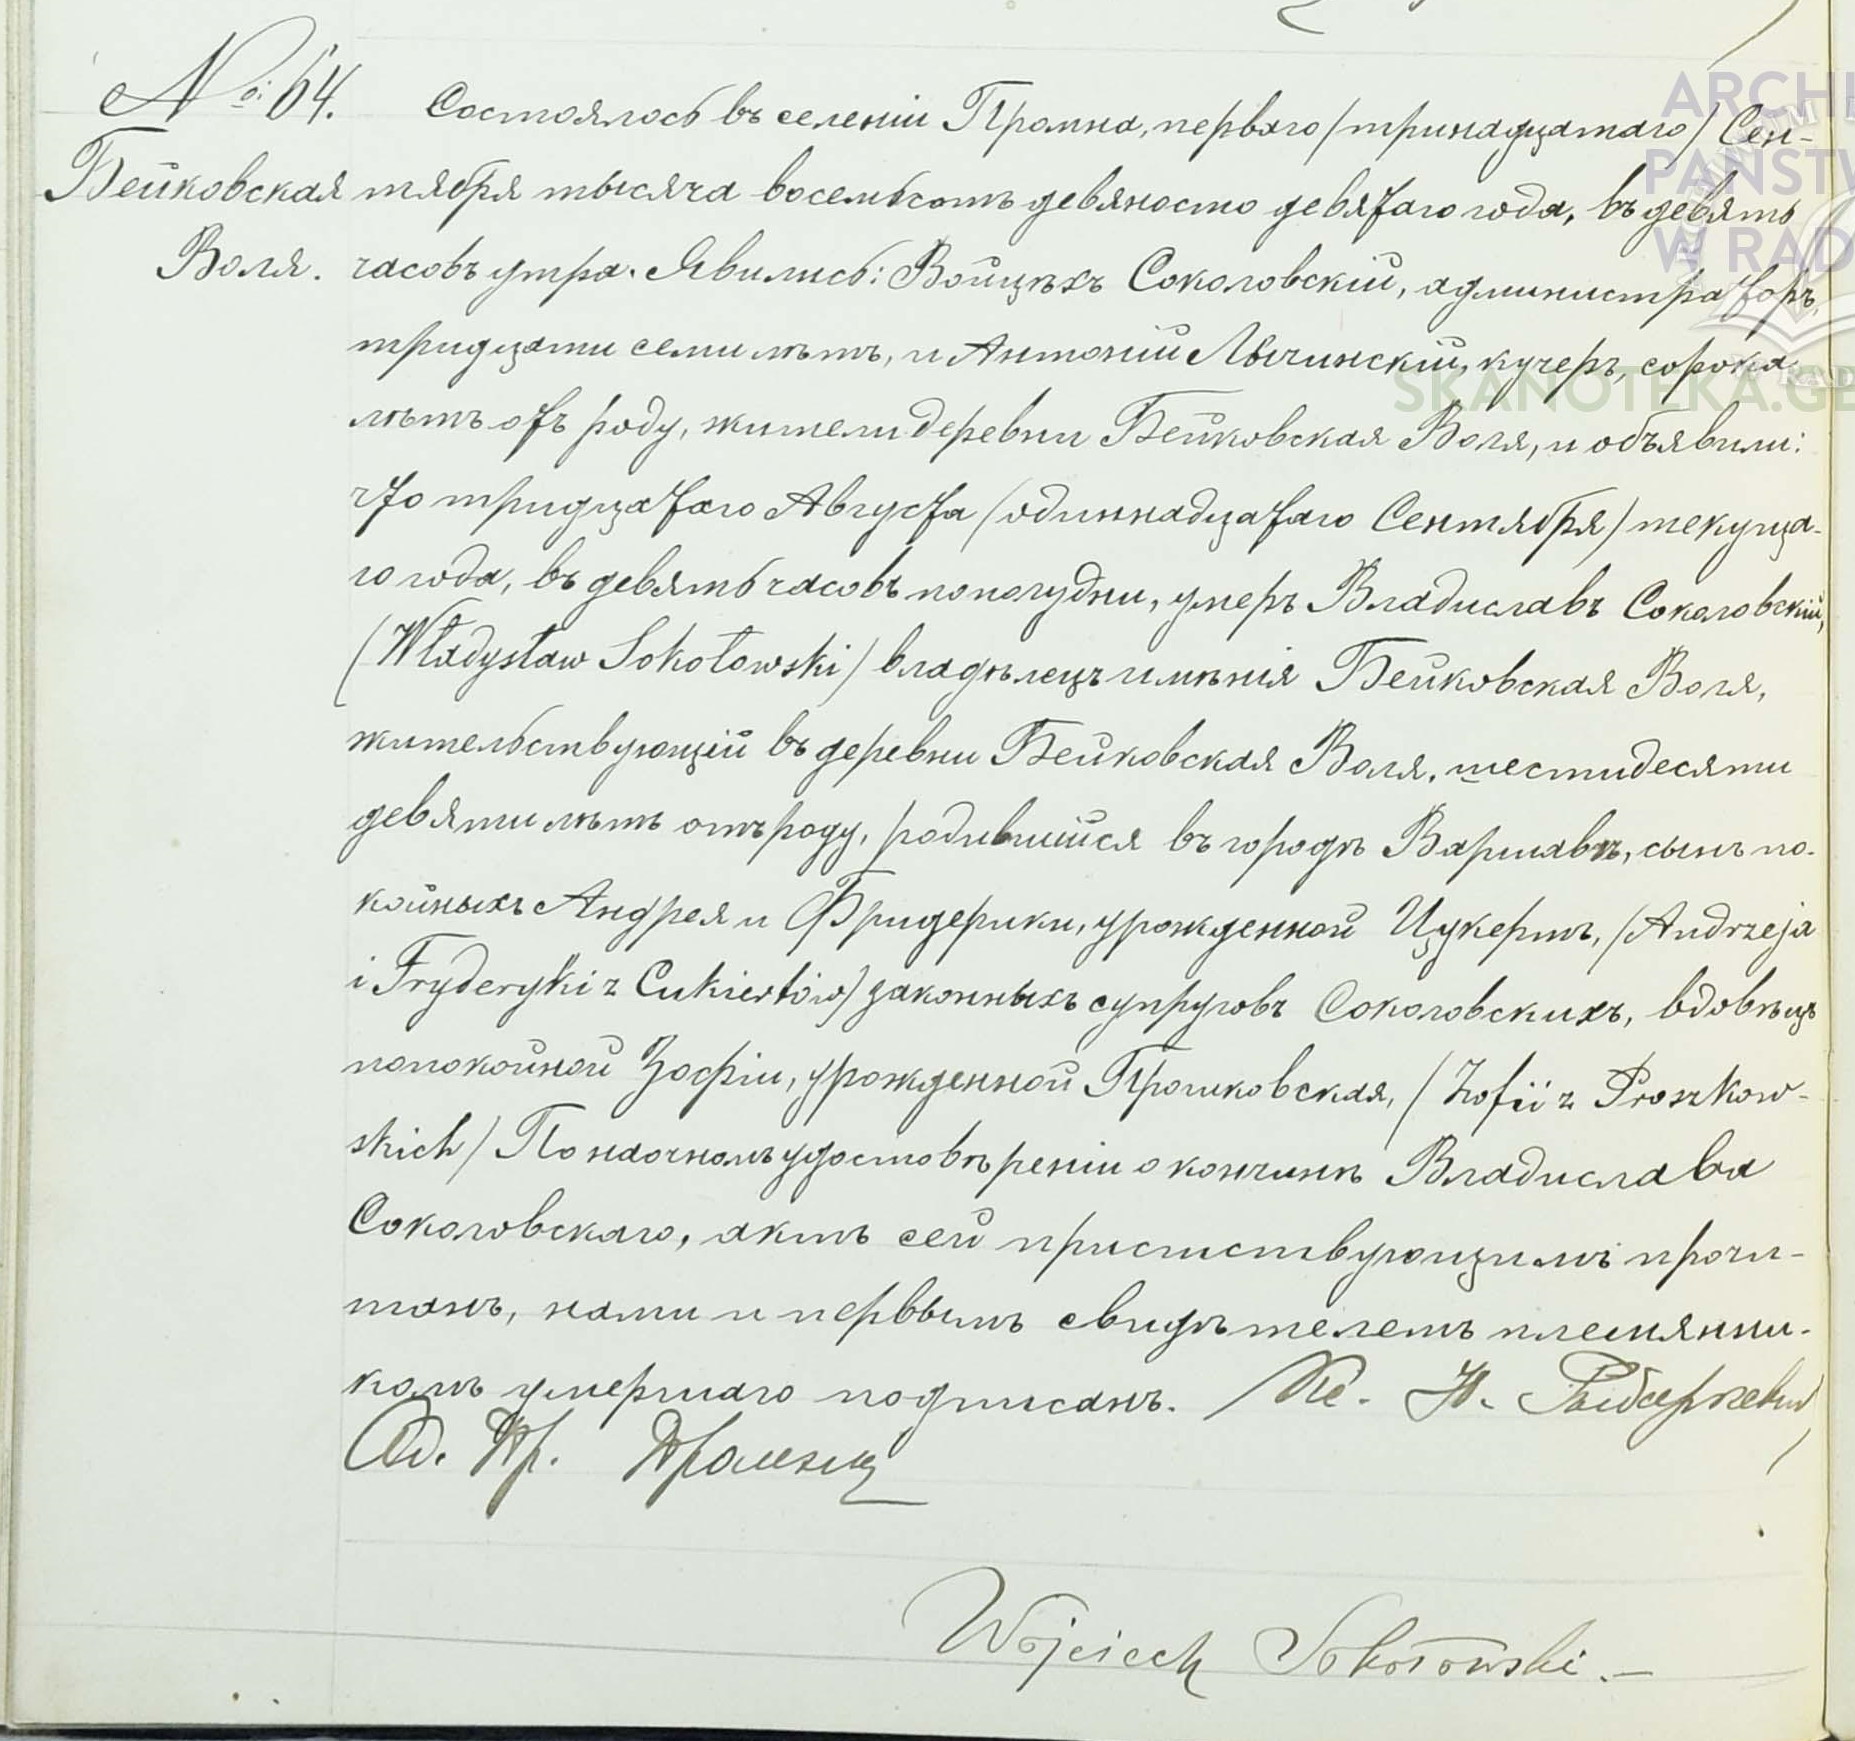 № 64.
Бейковская
Воля.
Состоялось въ селеніи Промна, перваго /тринадцатаго/ Сен-
тября тысяча восемьсотъ девяносто девятаго года, въ девять
часовъ утра. Явились: Войцѣхъ Соколовскій, администраторъ,
тридцати семи лѣтъ, и Антоній Лычинскій, кучеръ, сорока
лѣтъ отъ роду, жители деревни Бейковская Воля, и объявили:
что тридцатаго Августа (одиннадцатаго Сентября) текуща-
го года, въ девять часовъ пополудни, умеръ Владиславъ Соколовскій,
(Władysław Sokołowski) владѣлецъ имѣнія Бейковская Воля,
жительствующій въ деревни Бейковская Воля, шестидесяти
девяти лѣтъ отъ роду, родившійся въ городѣ Варшавѣ, сынъ по-
койныхъ Андрея и Фридерики, урожденной Цукертъ, (Andrzeja
i Fryderyki z Cukiertów) законныхъ супруговъ Соколовскихъ, вдовѣцъ
попокойной Зофіи, урожденной Прошковская, (Zofii z Proszkow-
skich) По наочномъ удостовѣреніи о кончинѣ Владислава
Соколовскаго, актъ сей присутствующимъ прочи-
танъ, нами и первымъ свидѣтелемъ племянни-
комъ умершаго подписанъ. Кс.
Wojciech Sokołowski.—
ARCHI
PAŃSTW
W RAD
SKANOTEKA.GE